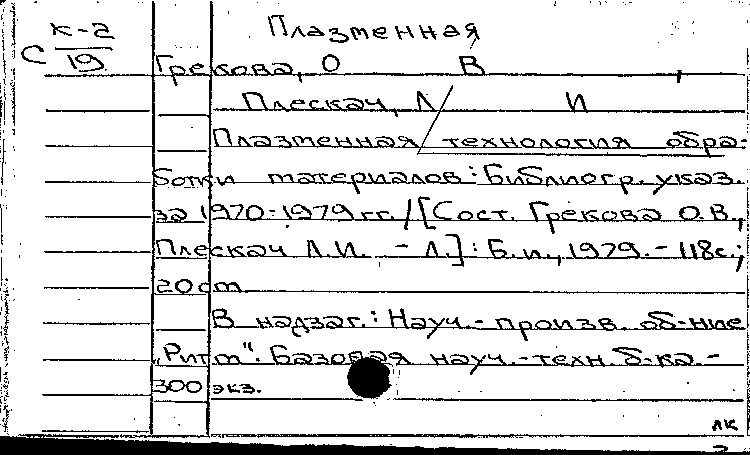 Плазменная
к-2
С 19
Грекова, О В ,
Плескач, Л И
Плазменная технология обра-
ботки материалов: Библиогр. указ.
за 1970-1979 гг. / [Сост. Грекова О.В.,
Плескач Л.И. - Л.]: Б.и., 1979. - 118с.;
20 cm
В надзаг.: Науч.-произв. об-ние
„Ритм". Базовая науч.-техн. б-ка. -
300 экз.
лк